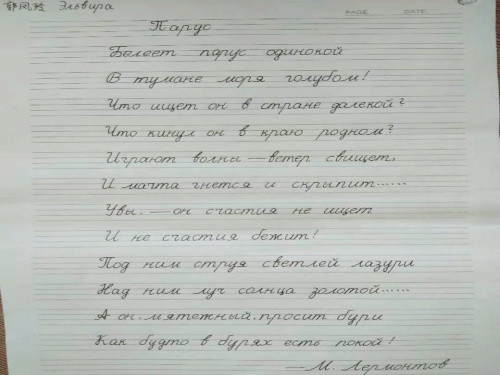 郭凤玲 Эльвира
PAGE DATE
Парус
Белеет парус одинокой
В тумане моря голубом!
Что ищет он в стране далекой?
Что кинул он в краю родном?
Играют волны — ветер свищет,
И мачта гнется и скрыпит......
Увы. — он счастия не ищет
И не счастия бежит!
Под ним струя светлей лазури
Над ним луч солнца золотой......
А он. мятежный. просит бури
Как будто в бурях есть покой!
— М. Лермонтов